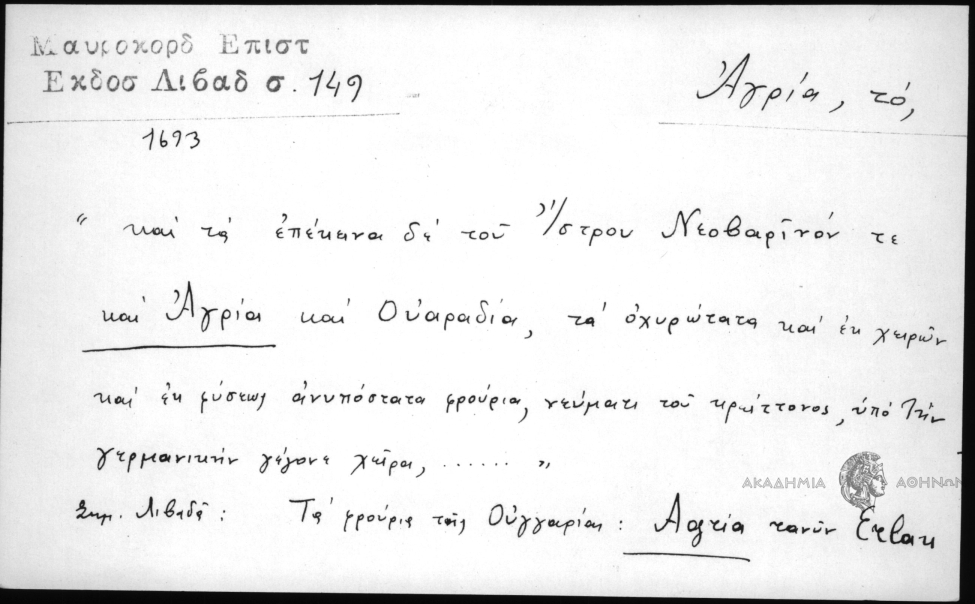 Μαυροκορδ Επιστ
Εκδοσ Λιβαδ σ. 149
Ἀγρία, τό,
1693
“ καὶ τὰ ἐπέκεινα δὲ τοῦ Ἴστρου Νεοβαρῖνόν τε
καὶ Ἀγρία καὶ Οὐαραδία, τὰ ὀχυρώτατα καὶ ἐκ χειρῶν
καὶ ἐκ φύσεως ἀνυπόστατα φρούρια, νεύματι τοῦ κρείττονος, ὑπὸ τὴν
γερμανικὴν γέγονε χεῖρα, ...... „
ΑΚΑΔΗΜΙΑ ΑΘΗΝΩΝ
Σημ. Λιβαδᾶ : Τὰ φρούρια τῆς Οὐγγαρίας : τανῦν